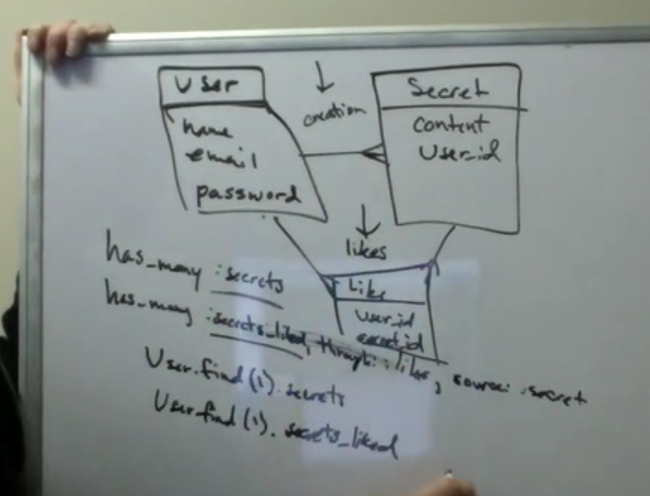 User
name
email
password
creation
Secret
content
user_id
likes
Like
user_id
secret_id
has_many :secrets
has_many :secrets_liked, through: :likes, source: :secret
User.find(1).secrets
User.find(1).secrets_liked